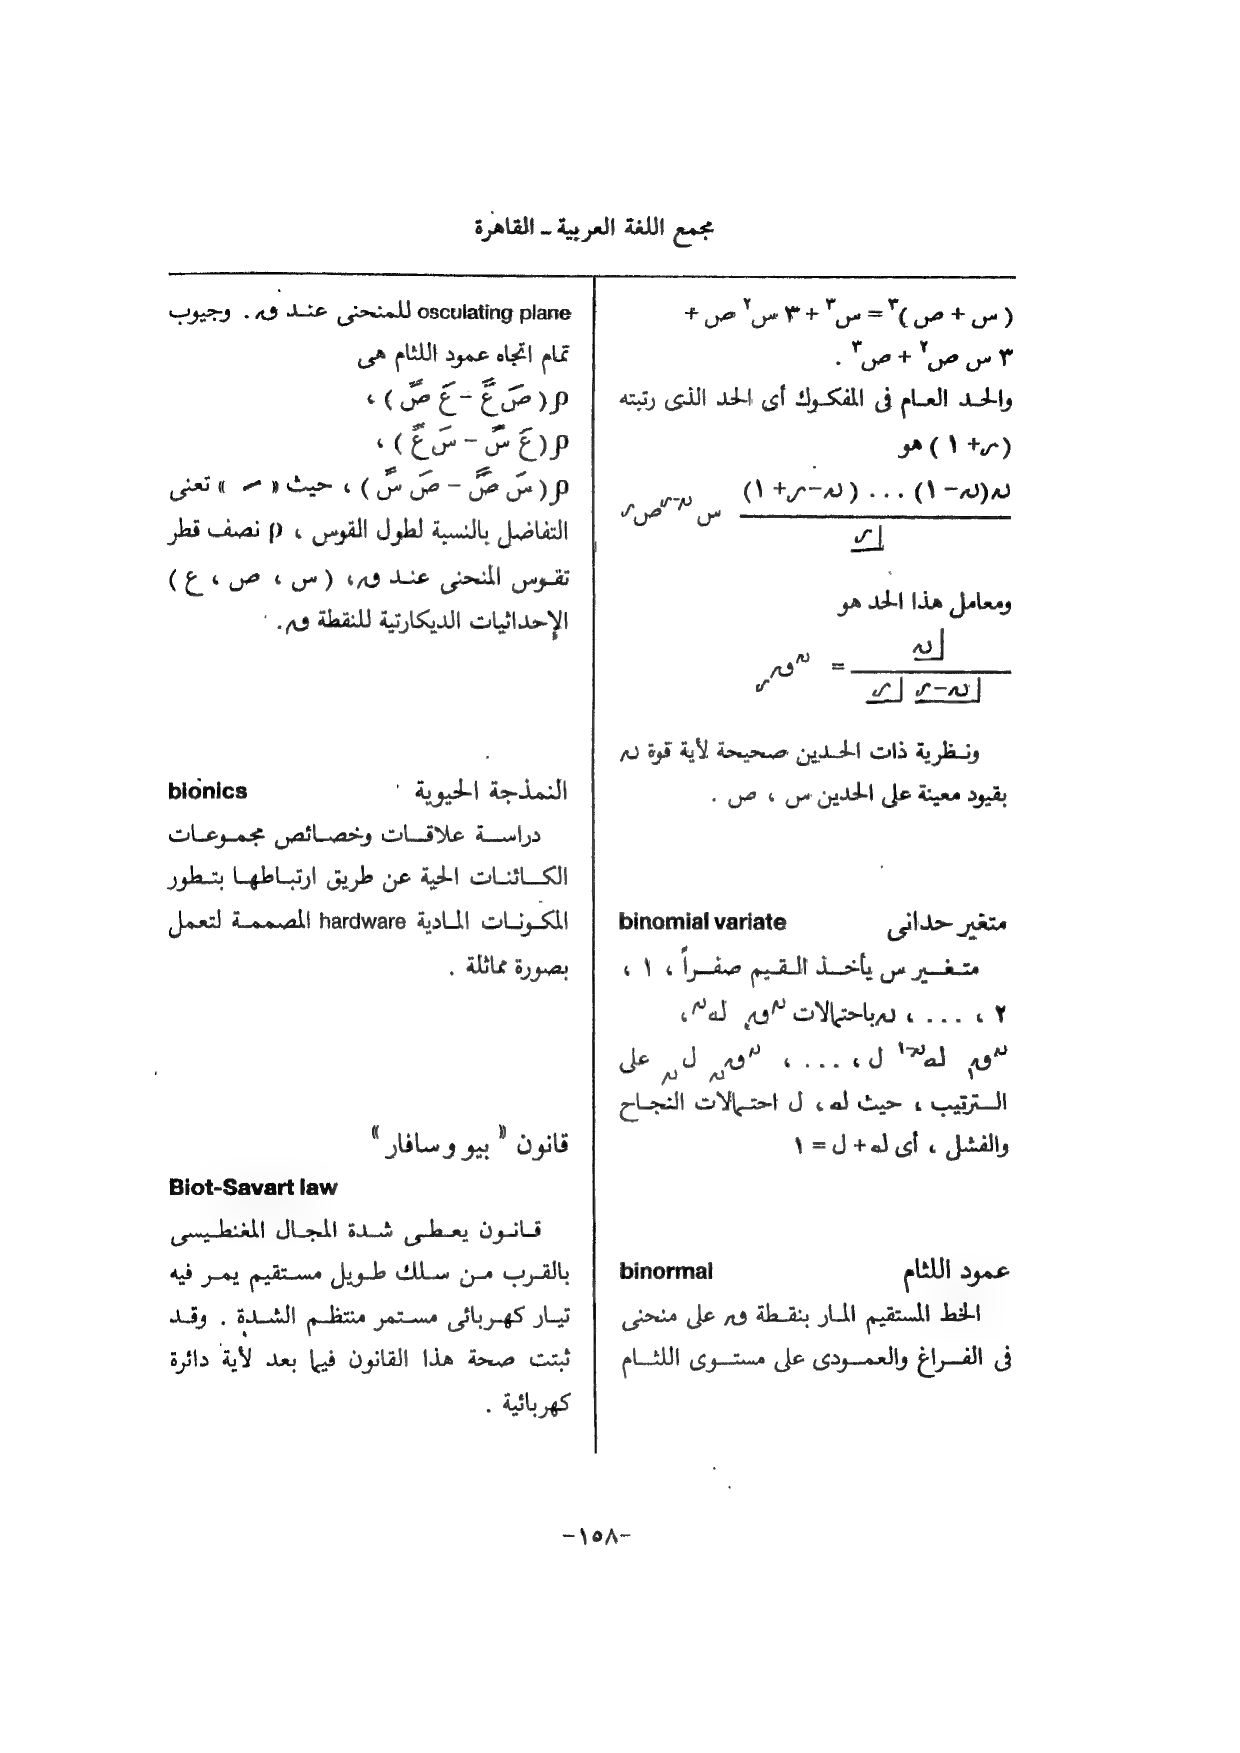 مجمع اللغة العربية ـ القاهرة
( س + ص )٣ = س٣ + ٣ س٢ ص +
٣ س ص٢ + ص٣ .
والحد العام فى المفكوك أى الحد الذى رتبته
( ر + ١ ) هو
ن(ن – ١) ... (ن – ر + ١)
س ن–ر ص ر
ر
ومعامل هذا الحد هو
ن
= ن ق ر
ن – ر ر
ونظرية ذات الحدين صحيحة لأية قوة ن
بقيود معينة على الحدين س ، ص .
متغير حدانى binomial variate
متغير س يأخذ القيم صفراً ، ١ ،
٢ ، ... ، ن باحتمالات
على
الترتيب ، حيث له ، ل احتمالات النجاح
والفشل ، أى له + ل = ١
عمود اللثام binormal
الخط المستقيم المار بنقطة ق على منحنى
فى الفراغ والعمودى على مستوى اللثام
osculating plane للمنحنى عند ق . وجيوب
تمام اتجاه عمود اللثام هى
ρ (صَ عً – عَ صً ) ،
ρ (عَ سً – سَ عً ) ،
ρ (سَ صً – صَ سً ) ، حيث « ــَ » تعنى
التفاضل بالنسبة لطول القوس ، ρ نصف قطر
تقوس المنحنى عند ق ، ( س ، ص ، ع )
الإحداثيات الديكارتية للنقطة ق .
النمذجة الحيوية bionics
دراسة علاقات وخصائص مجموعات
الكائنات الحية عن طريق ارتباطها بتطور
المكونات المادية hardware المصممة لتعمل
بصورة مماثلة .
قانون « بيو وسافار »
Biot-Savart law
قانون يعطى شدة المجال المغنطيسى
بالقرب من سلك طويل مستقيم يمر فيه
تيار كهربائى مستمر منتظم الشدة . وقد
ثبتت صحة هذا القانون فيما بعد لأية دائرة
كهربائية .
–١٥٨–